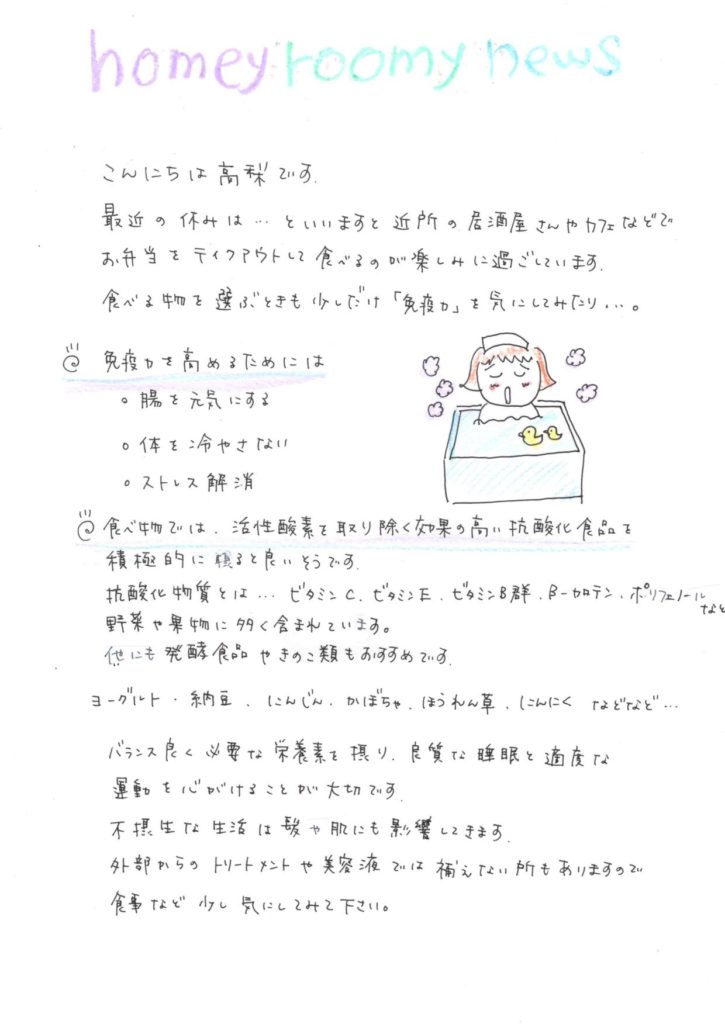 homey roomy news
こんにちは 高梨です.
最近の休みは… といいますと 近所の居酒屋さんやカフェなどで
お弁当を テイクアウトして食べるのが楽しみに過ごしています.
食べる物を選ぶときも少しだけ「免疫力」を気にしてみたり…。
◎ 免疫力を高めるためには
○ 腸を元気にする
○ 体を冷やさない
○ ストレス解消
◎ 食べ物では、活性酸素を取り除く効果の高い抗酸化食品を
積極的に摂ると良いそうです.
抗酸化物質とは… ビタミンC、ビタミンE、ビタミンB群、β-カロテン、ポリフェノール など
野菜や果物に多く含まれています。
他にも発酵食品やきのこ類もおすすめです.
ヨーグルト・納豆、にんじん、かぼちゃ、ほうれん草、にんにく などなど…
バランス良く必要な栄養素を摂り、良質な睡眠と適度な
運動を心がけることが大切です.
不摂生な生活は髪や肌にも影響してきます.
外部からのトリートメントや美容液では補えない所もありますので
食事など少し気にしてみて下さい。